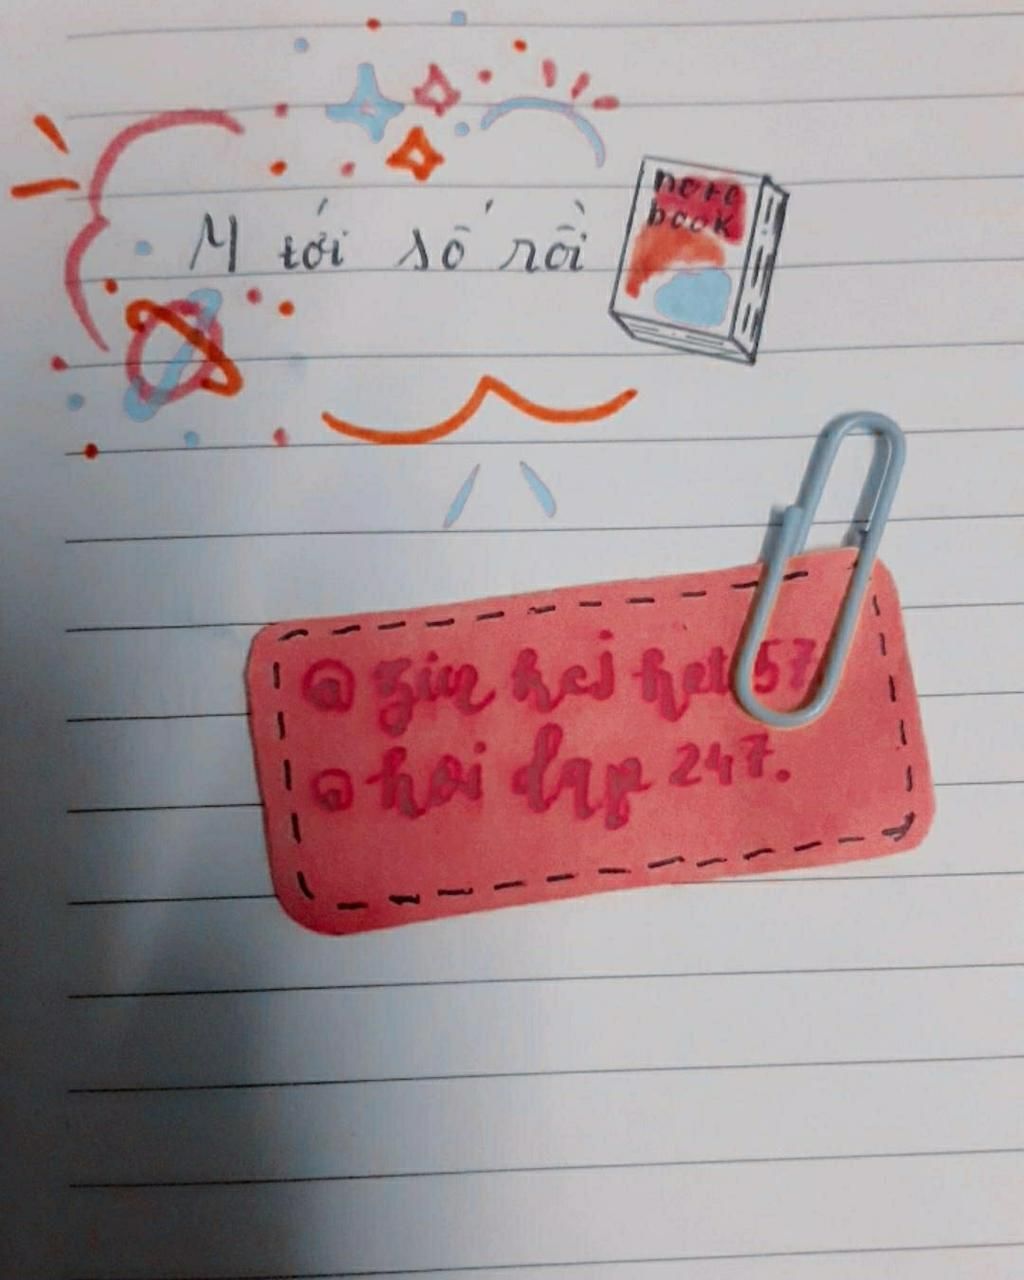 M tới số rồi
note
book
@ zin hei het 57
@ hoi dap 247.